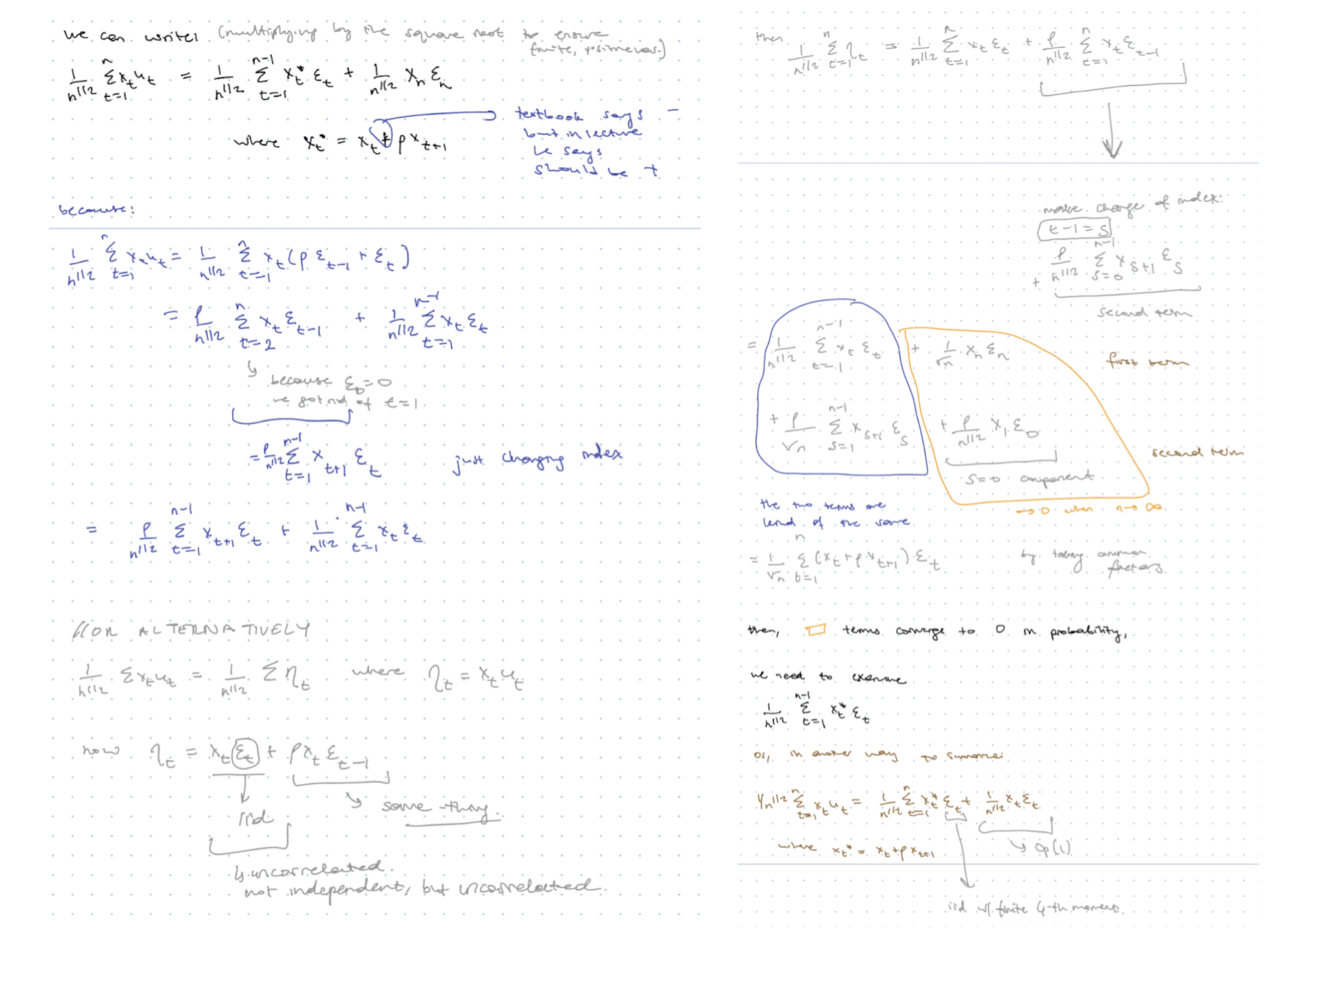 we can write: (multiplying by the square root to ensure
finite, positive var.)
1/n^{1/2} Σ_{t=1}^{n} x_t u_t = 1/n^{1/2} Σ_{t=1}^{n-1} x_t^* ε_t + 1/n^{1/2} x_n ε_n
where x_t^* = x_t + ρ x_{t+1}
textbook says −
but in lecture
he says
should be +
because:
1/n^{1/2} Σ_{t=1}^{n} x_t u_t = 1/n^{1/2} Σ_{t=1}^{n} x_t (ρ ε_{t-1} + ε_t)
= ρ/n^{1/2} Σ_{t=2}^{n} x_t ε_{t-1} + 1/n^{1/2} Σ_{t=1}^{n-1} x_t ε_t
because ε_0 = 0
we got rid of t=1
= ρ/n^{1/2} Σ_{t=1}^{n-1} x_{t+1} ε_t just changing index
= ρ/n^{1/2} Σ_{t=1}^{n-1} x_{t+1} ε_t + 1/n^{1/2} Σ_{t=1}^{n-1} x_t ε_t
//OR ALTERNATIVELY
1/n^{1/2} Σ x_t u_t = 1/n^{1/2} Σ η_t where η_t = x_t u_t
now η_t = x_t ε_t + ρ x_t ε_{t-1}
iid
same thing.
↳ uncorrelated.
not independent, but uncorrelated.
then 1/n^{1/2} Σ_{t=1}^{n} η_t = 1/n^{1/2} Σ_{t=1}^{n} x_t ε_t + ρ/n^{1/2} Σ_{t=1}^{n} x_t ε_{t-1}
make change of index:
t-1 = s
+ ρ/n^{1/2} Σ_{s=0}^{n-1} x_{s+1} ε_s
second term
= 1/n^{1/2} Σ_{t=1}^{n-1} x_t ε_t + 1/√n x_n ε_n
first term
+ ρ/√n Σ_{s=1}^{n-1} x_{s+1} ε_s + ρ/n^{1/2} x_1 ε_0
second term
s=0 component
the two terms are
kind of the same
→ 0 when n → ∞
= 1/√n Σ_{t=1}^{n} (x_t + ρ x_{t+1}) ε_t by taking common
factors.
then, ▭ terms converge to 0 in probability,
we need to examine
1/n^{1/2} Σ_{t=1}^{n-1} x_t^* ε_t
or, in another way to summarise
1/n^{1/2} Σ_{t=1}^{n} x_t u_t = 1/n^{1/2} Σ_{t=1}^{n} x_t^* ε_t + 1/n^{1/2} x_t ε_t
where x_t^* = x_t + ρ x_{t+1}
↳ op(1)
iid w/ finite 4-th moment.